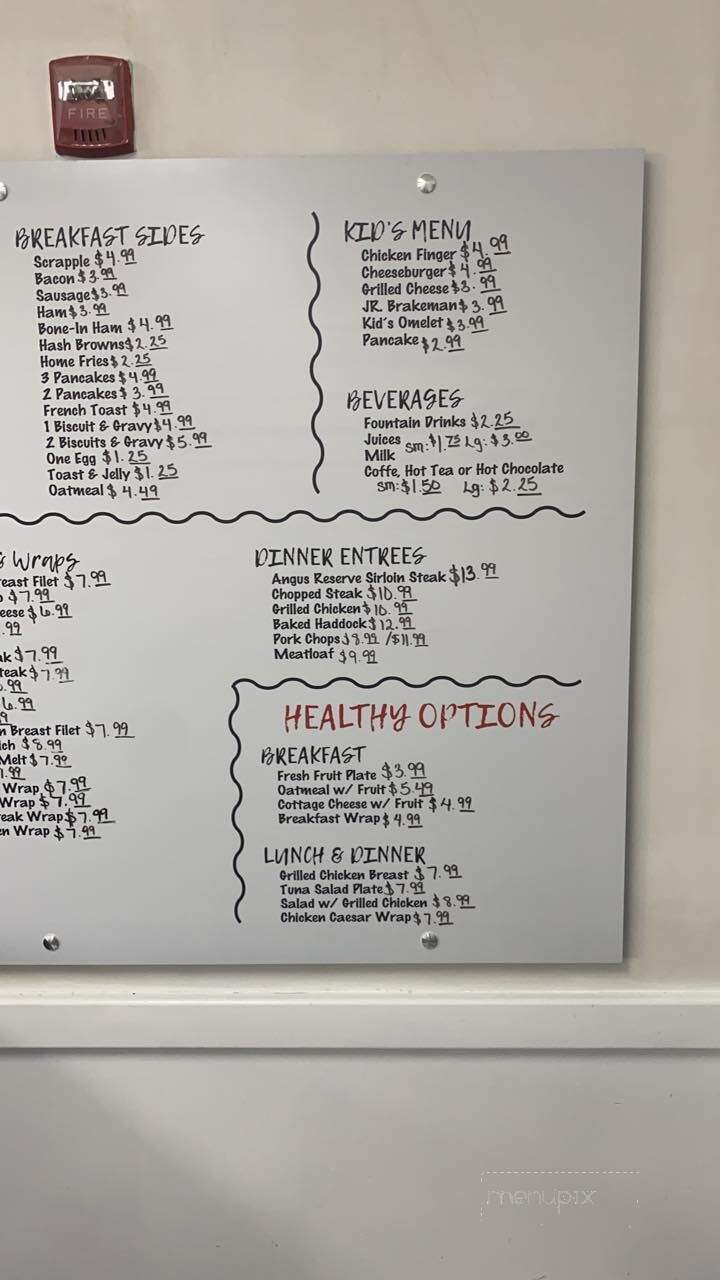 FIRE
BREAKFAST SIDES
Scrapple $4.99
Bacon $3.99
Sausage $3.99
Ham $3.99
Bone-In Ham $4.99
Hash Browns $2.25
Home Fries $2.25
3 Pancakes $4.99
2 Pancakes $3.99
French Toast $4.99
1 Biscuit & Gravy $4.99
2 Biscuits & Gravy $5.99
One Egg $1.25
Toast & Jelly $1.25
Oatmeal $4.49
KID'S MENU
Chicken Finger $4.99
Cheeseburger $4.99
Grilled Cheese $3.99
JR. Brakeman $3.99
Kid's Omelet $3.99
Pancake $2.99
BEVERAGES
Fountain Drinks $2.25
Juices sm: $1.75 Lg: $3.00
Milk
Coffe, Hot Tea or Hot Chocolate
sm: $1.50 Lg: $2.25
& Wraps
east Filet $7.99
$7.99
eese $6.99
.99
ak $7.99
teak $7.99
.99
6.99
n Breast Filet $7.99
ich $8.99
Melt $7.99
.99
Wrap $7.99
Wrap $7.99
eak Wrap $7.99
en Wrap $7.99
DINNER ENTREES
Angus Reserve Sirloin Steak $13.99
Chopped Steak $10.99
Grilled Chicken $10.99
Baked Haddock $12.99
Pork Chops $8.99 /$11.99
Meatloaf $9.99
HEALTHY OPTIONS
BREAKFAST
Fresh Fruit Plate $3.99
Oatmeal w/ Fruit $5.49
Cottage Cheese w/ Fruit $4.99
Breakfast Wrap $4.99
LUNCH & DINNER
Grilled Chicken Breast $7.99
Tuna Salad Plate $7.99
Salad w/ Grilled Chicken $8.99
Chicken Caesar Wrap $7.99
menupix